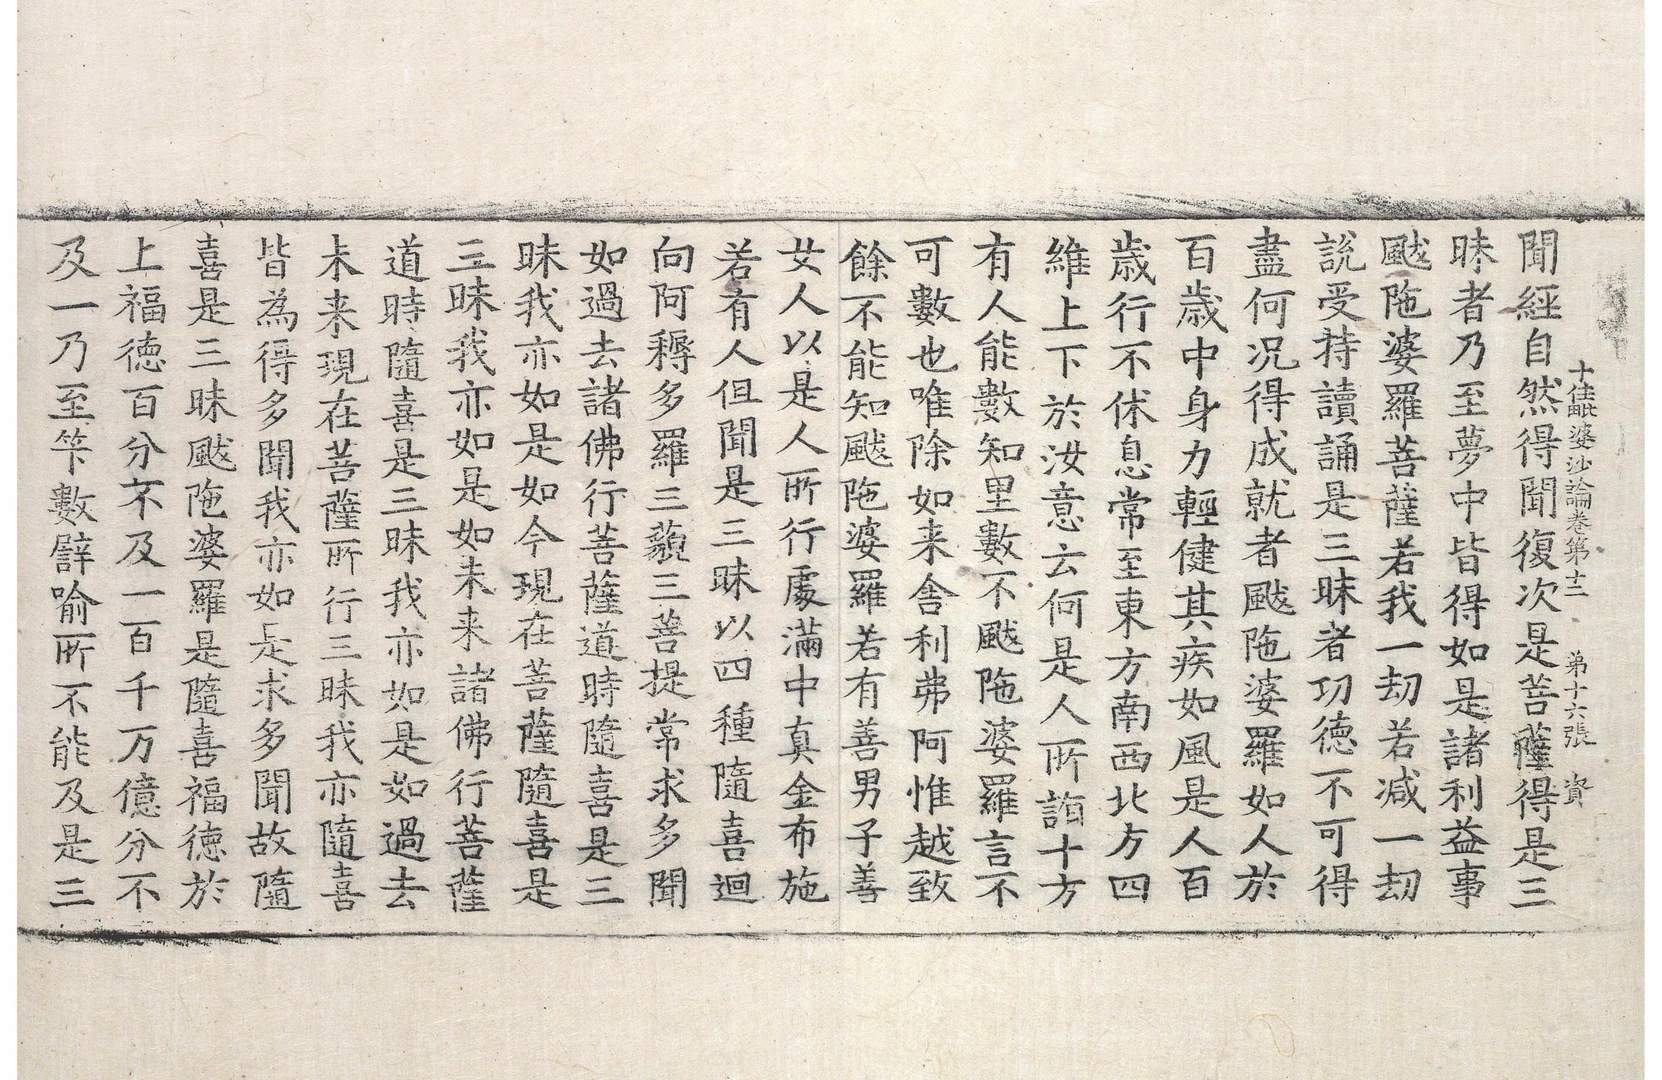 十住毗婆沙論卷第十二 第十六張 資
聞經自然得聞復次是菩薩得是三
昧者乃至夢中皆得如是諸利益事
颰陁婆羅菩薩若我一劫若減一劫
說受持讀誦是三昧者功德不可得
盡何况得成就者颰陁婆羅如人於
百歲中身力輕健其疾如風是人百
歲行不休息常至東方南西北方四
維上下於汝意云何是人所詣十方
有人能數知里數不颰陁婆羅言不
可數也唯除如来舍利弗阿惟越致
餘不能知颰陁婆羅若有善男子善
女人以是人所行處滿中真金布施
若有人但聞是三昧以四種隨喜迴
向阿耨多羅三藐三菩提常求多聞
如過去諸佛行菩薩道時隨喜是三
昧我亦如是如今現在菩薩隨喜是
三昧我亦如是如未来諸佛行菩薩
道時隨喜是三昧我亦如是如過去
未来現在菩薩所行三昧我亦隨喜
皆為得多聞我亦如是求多聞故隨
喜是三昧颰陁婆羅是隨喜福德於
上福德百分不及一百千万億分不
及一乃至筭數譬喻所不能及是三